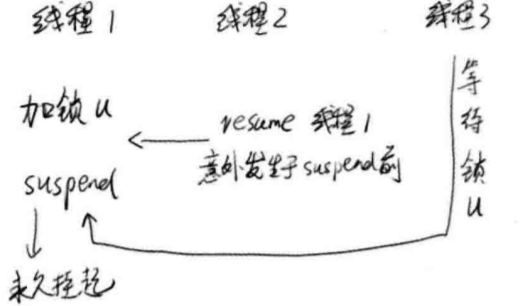 线程1 线程2 线程3
加锁u
resume 线程1
意外发生于suspend前
suspend
永久挂起
等待锁u